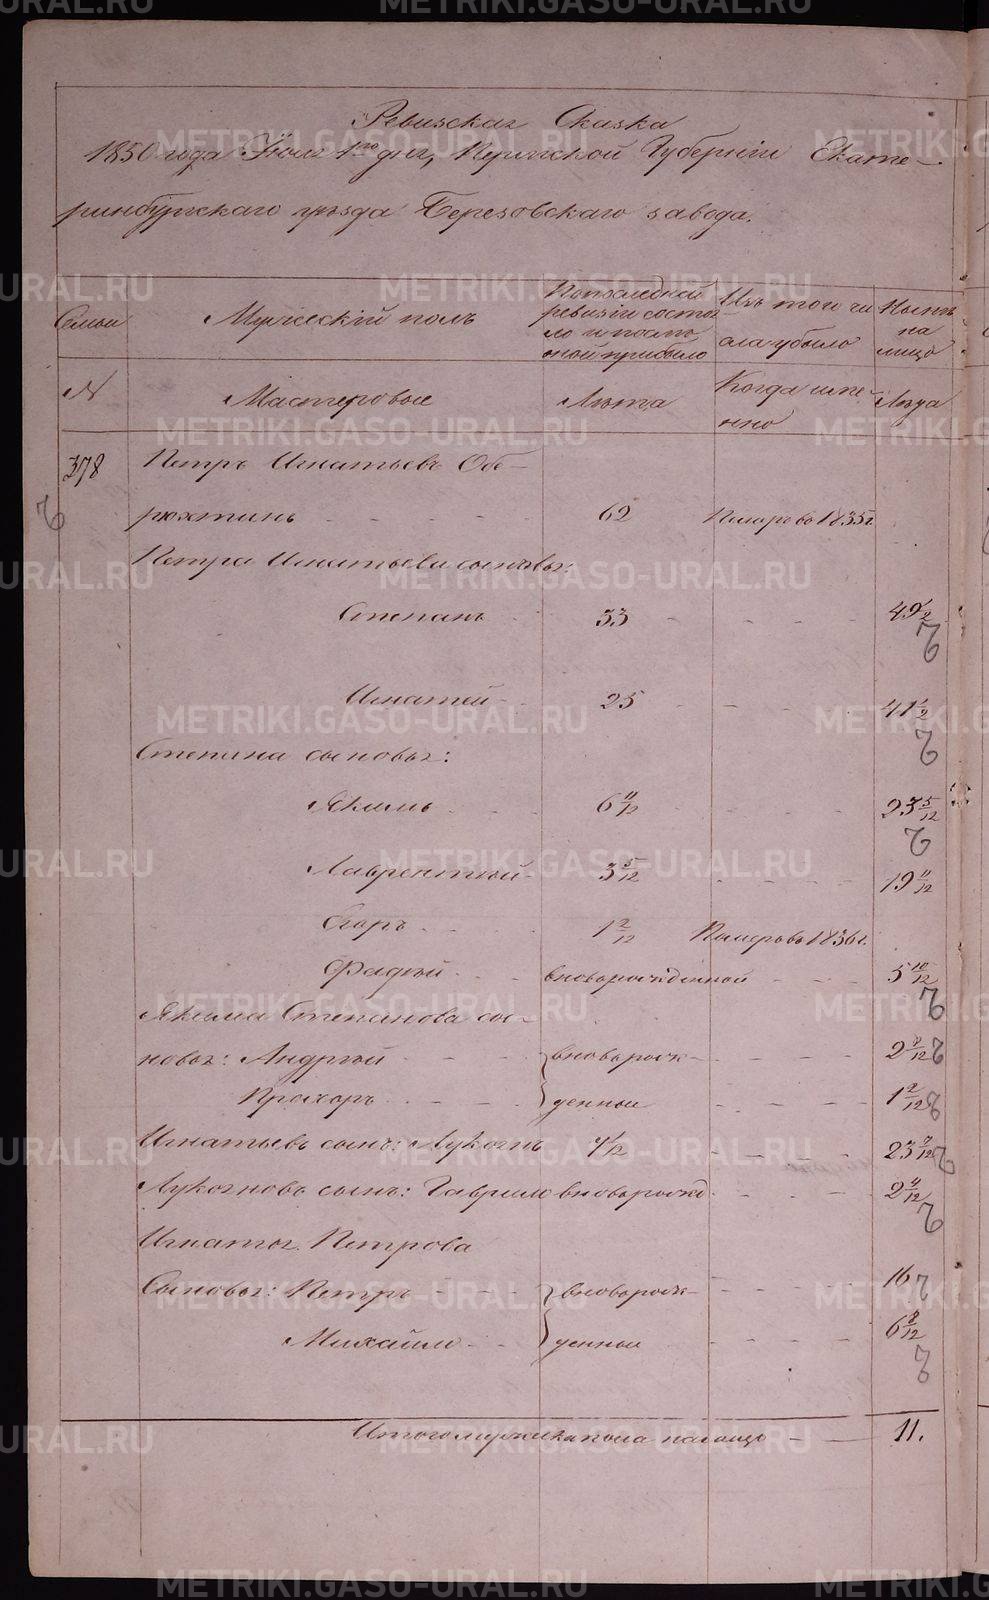 Ревизская Сказка
1850 года Іюля 1го дня, Пермской Губерніи Екате-
ринбургскаго уѣзда Березовскаго завода.
Семьи
Мужескій полъ
По последней ревизіи состояло и послѣ оной прибыло
Изъ того числа убыло
Нынѣ на лицо
№
Мастеровые
Лѣта
Когда имянно
Лѣта
378
Петръ Игнатьевъ Обе-
рюхтинъ 62 Померъ въ 1835 г.
Петра Игнатьева сыновья:
Степанъ 33 49 1/2
Игнатей 25 41 1/2
Степана сыновья:
Якимъ 6 11/12 23 5/12
Лаврентій 3 5/12 19 11/12
Егоръ 1 2/12 Померъ въ 1836 г.
Фадѣй вноворожденной 5 10/12
Якима Степанова сы-
новья: Андрѣй вноворож- 2 9/12
Прохоръ денныи 1 2/12
Игнатьевъ сынъ: Лукоянъ 23 9/12
Лукояновъ сынъ: Гаврило вноворожд 2 4/12
Игнатья Петрова
Сыновья: Петръ вноворож- 16
Михайло денныи 6 8/12
Итого мужеска пола на лицо 11.
METRIKI.GASO-URAL.RU